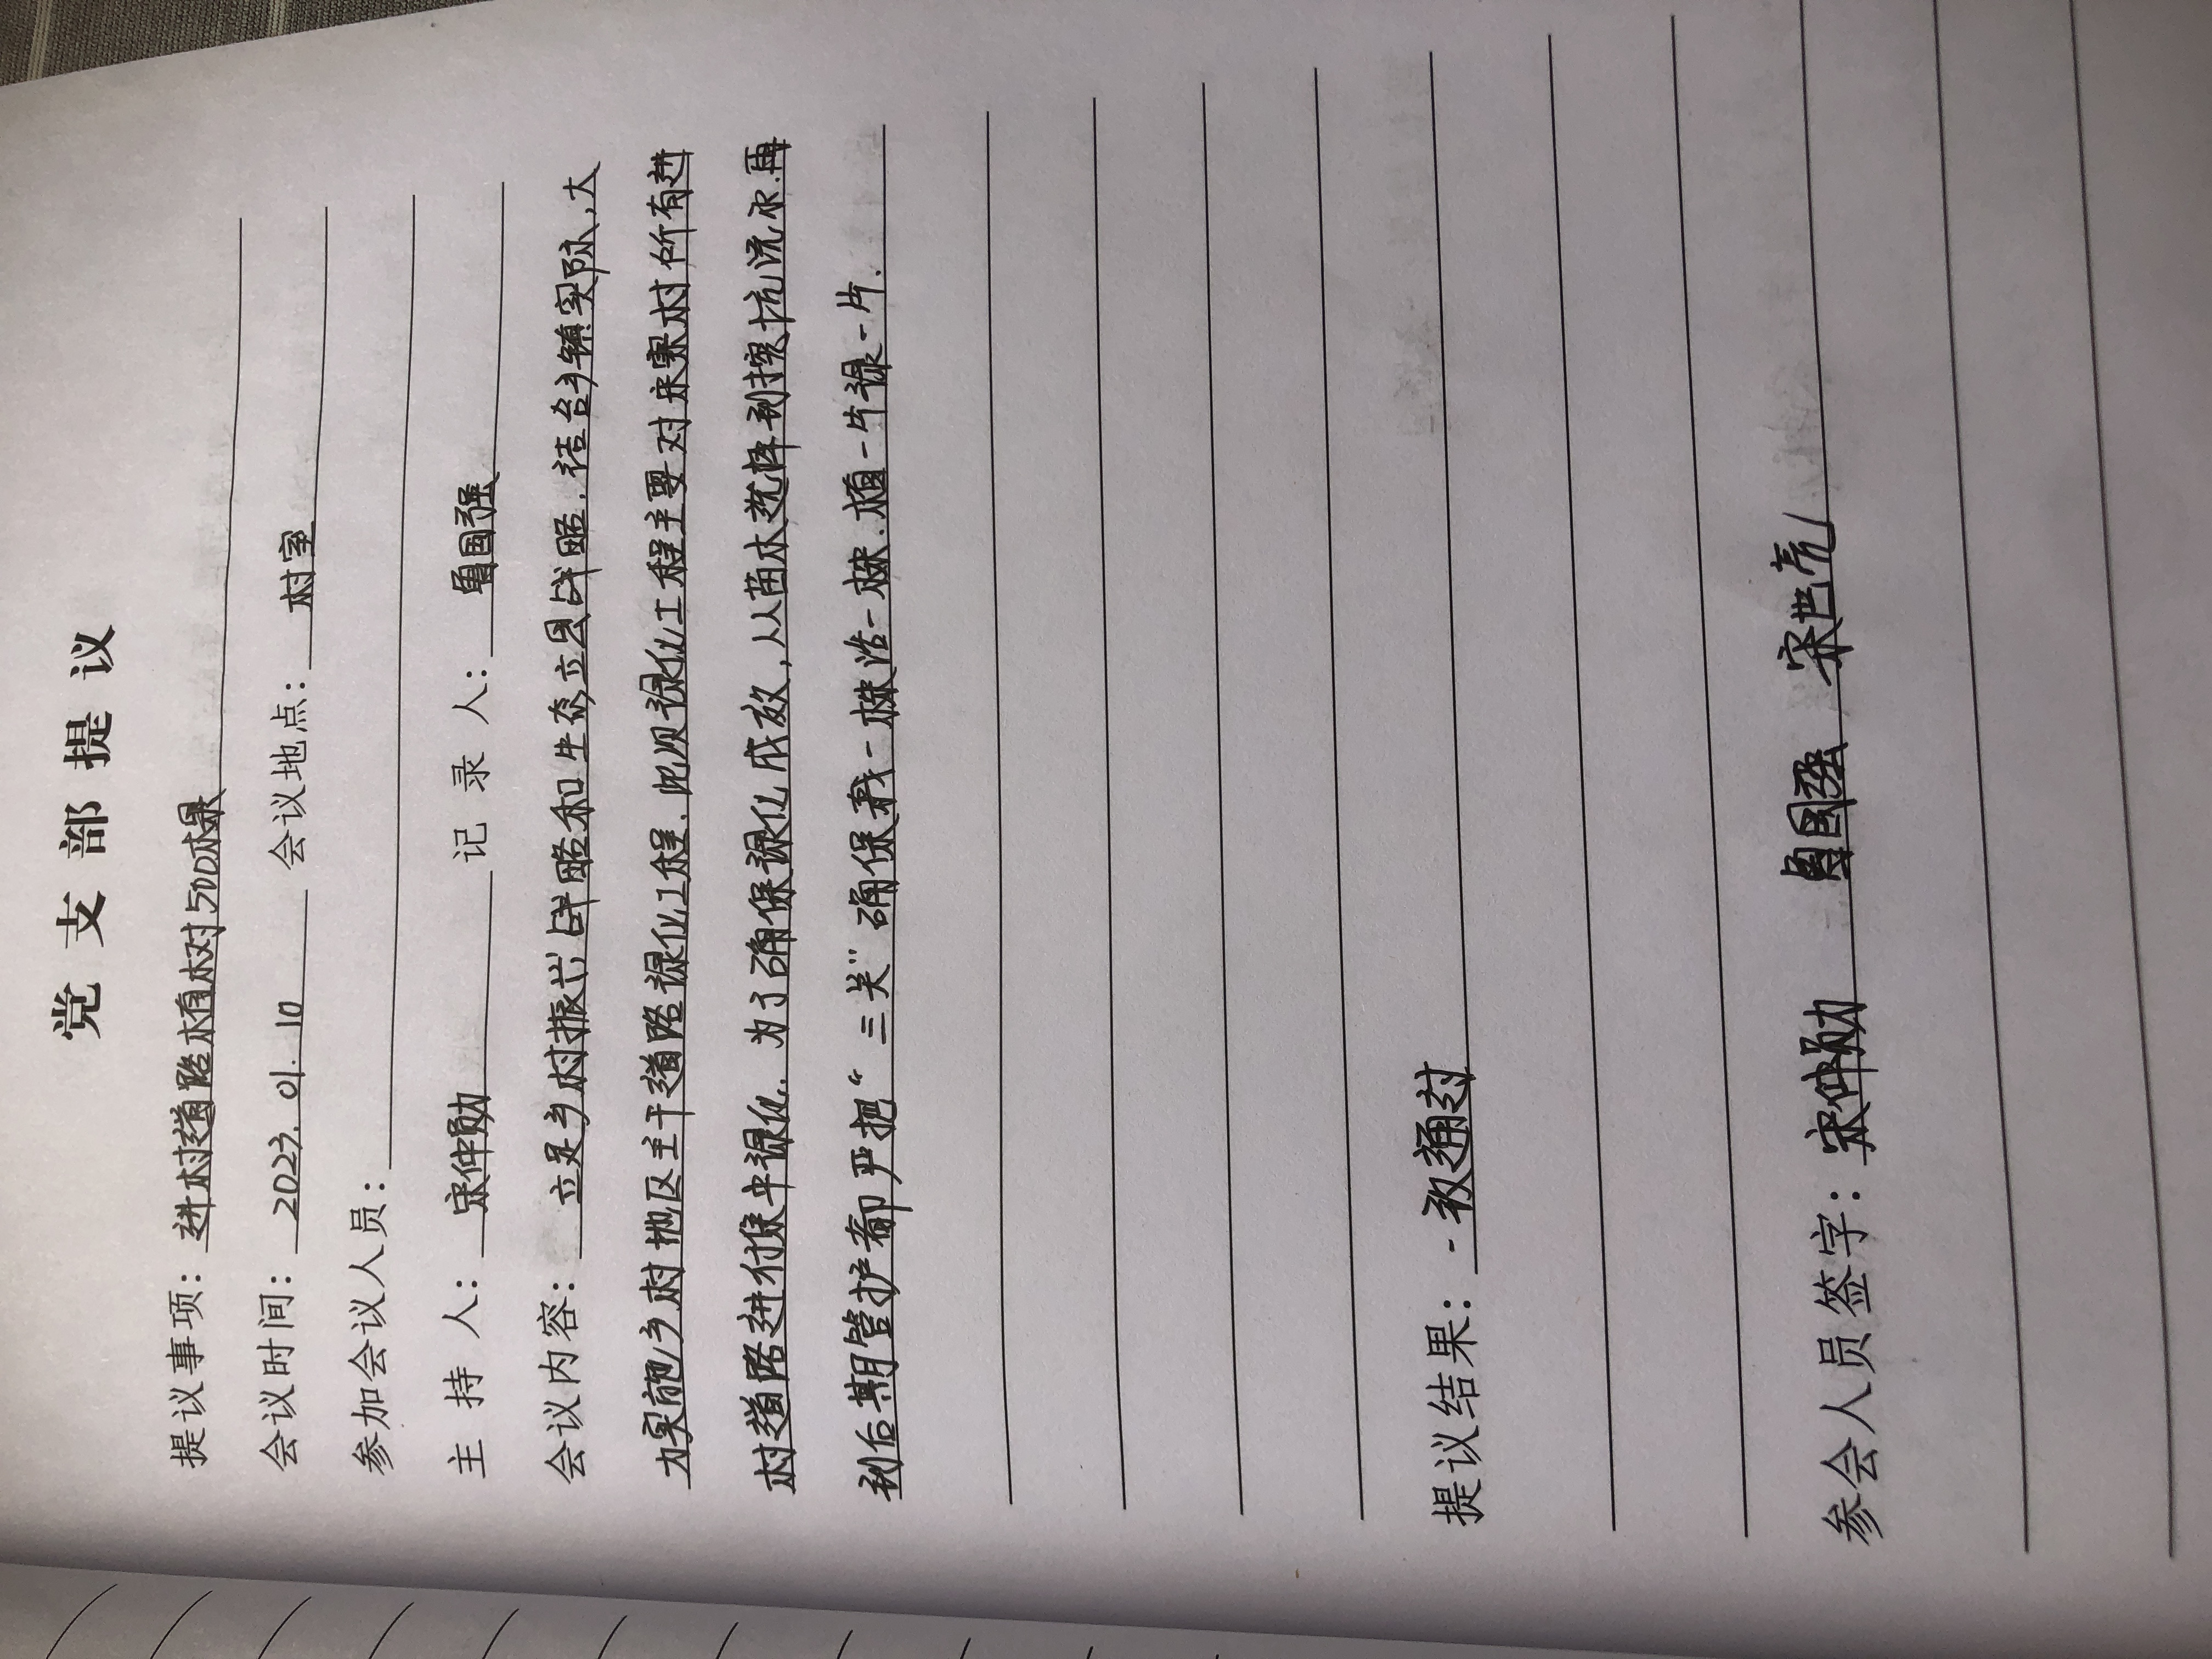 党支部提议
提议事项：进村道路植树500棵
会议时间：2023.01.10 会议地点：村室
参加会议人员：
主持人：宋仲勋 记录人：鲁国强
会议内容：立足乡村振兴战略和生态立县战略.结合乡镇实际,大
力实施乡村地区主干道路绿化工程.此次绿化工程主要对宋寨村所有进
村道路进行集中绿化.为了确保绿化成效,从苗木选择到挖坑浇水.再
到后期管护都严把“三关”确保栽一株活一株.植一片绿一片.
提议结果：一致通过
参会人员签字：宋仲勋 鲁国强 宋世亮